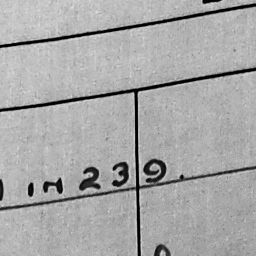 IN 239.